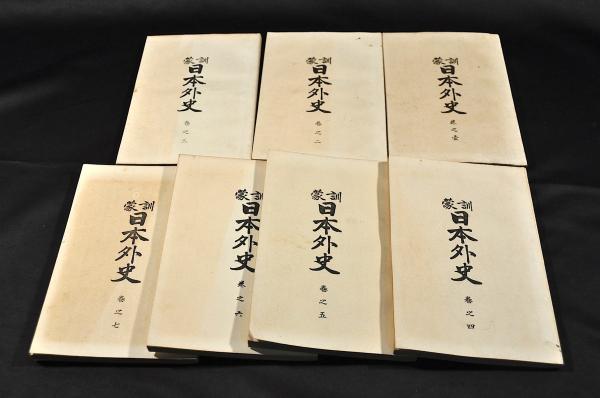 訓蒙
日本外史
巻之壹
訓蒙
日本外史
巻之二
訓蒙
日本外史
巻之三
訓蒙
日本外史
巻之四
訓蒙
日本外史
巻之五
訓蒙
日本外史
巻之六
訓蒙
日本外史
巻之七